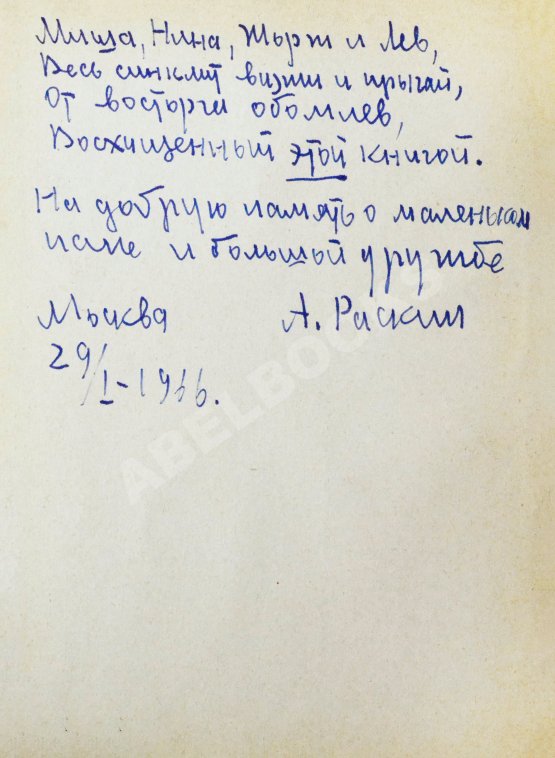 Миша, Нина, Жорж и Лев,
Весь синклит визжи и прыгай,
От восторга обомлев,
Восхищенный этой книгой.
На добрую память о маленьком
папе и большой дружбе
Москва А. Раскин
29/I-1966.
ABELBOOKS